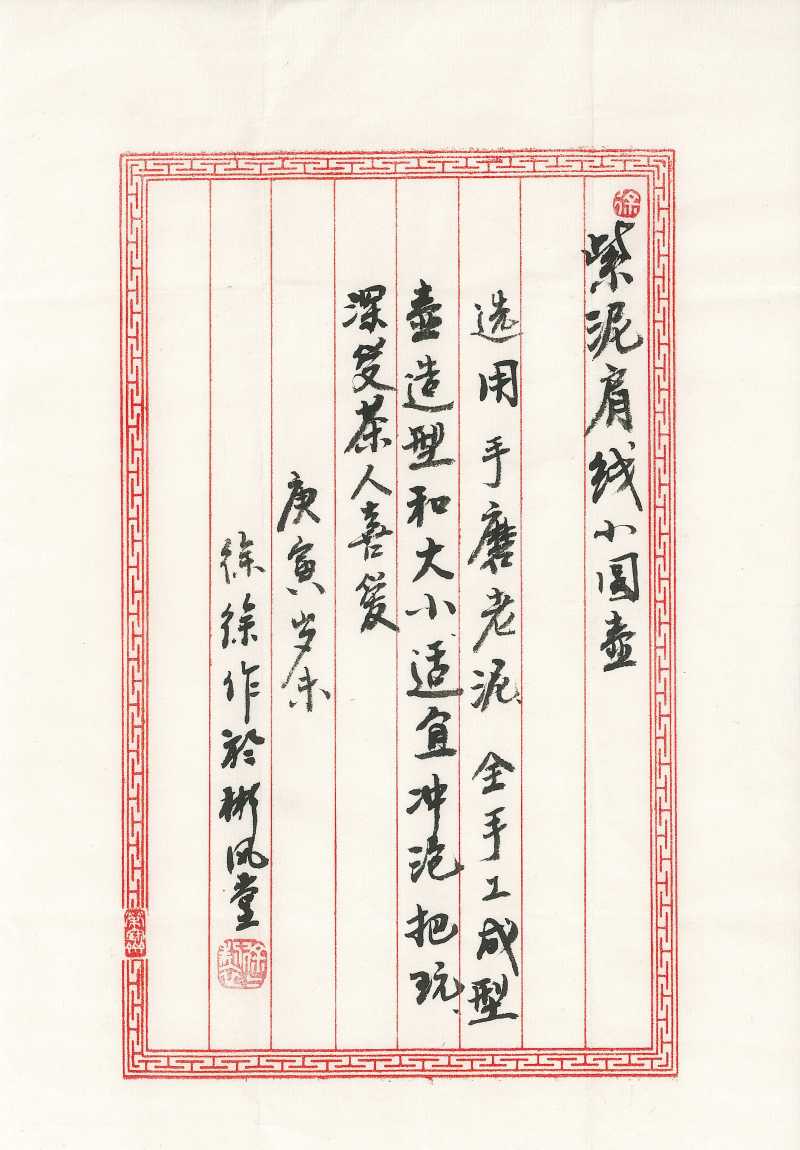 徐
紫泥肩线小圆壶
选用手磨老泥 全手工成型
壶造型和大小适宜冲泡把玩
深受茶人喜爱
庚寅岁末
徐徐作於彬风堂